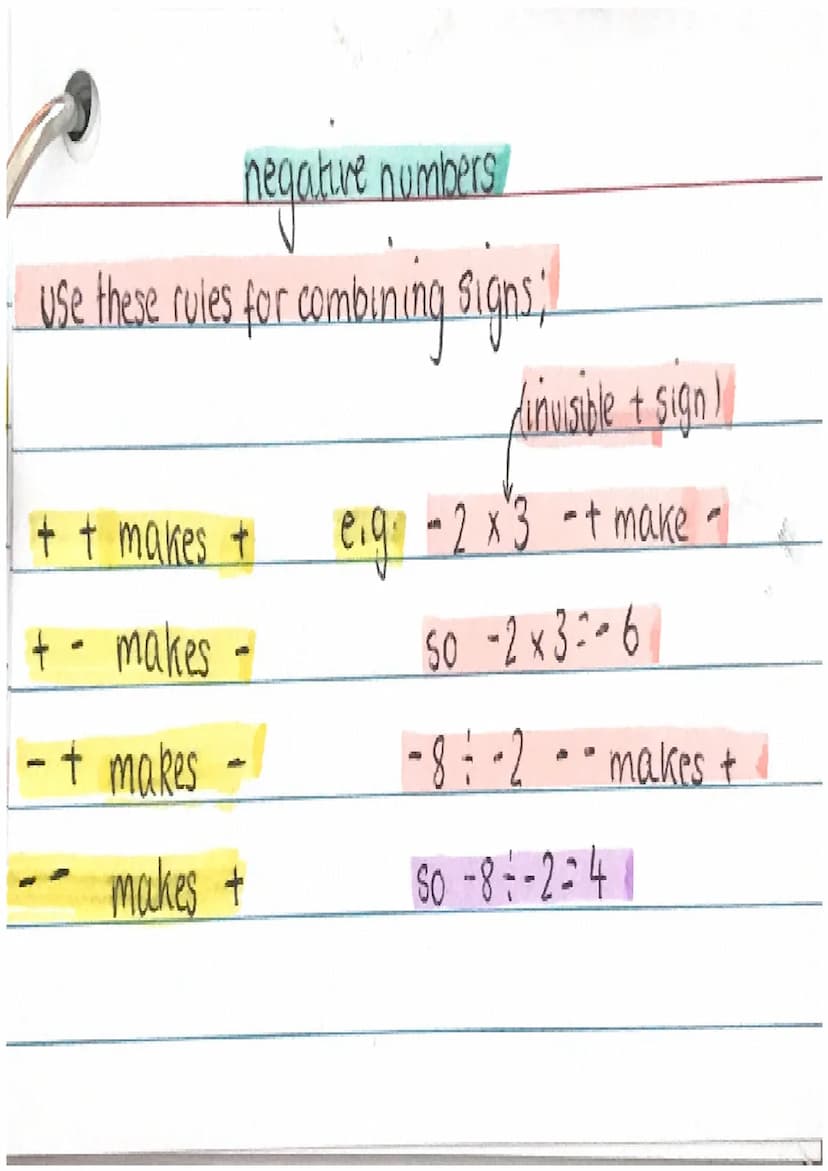 negative numbers
use these rules for combining signs;
(invisible + sign)
+ + makes + e.g. -2 x 3 -+ make -
+ - makes - so -2 x 3 = -6
- + makes - -8 ÷ -2 -- makes +
-- makes + so -8 ÷ -2 = 4